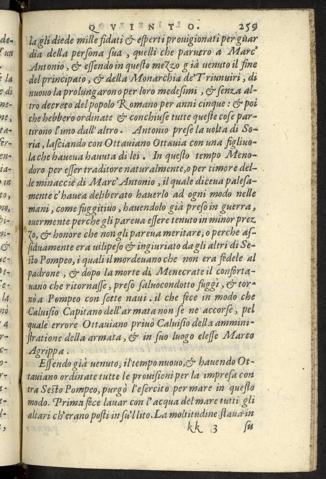 QVINTO. 259
la gli diede mille fidati & esperti prouigionati per guar
dia della persona sua, quelli che paruero a Marc'
Antonio, & essendo in questo mezzo già venuto il fine
del principato, & della Monarchia de'Triunuiri, di
nuouo la prolungarono per loro medesimi, & senza al-
tro decreto del popolo Romano per anni cinque: & poi
che hebbero ordinate & conchiuse tutte queste cose par-
tirono l'uno dall'altro. Antonio prese la uolta di So-
ria, lasciando con Ottauiano Ottauia con una figliuo-
la che haueua hauuta di lei. In questo tempo Meno-
doro per esser traditore naturalmente, o per timore del-
le minaccie di Marc'Antonio, il quale diceua palesa-
mente c'hauea deliberato hauerlo ad ogni modo nelle
mani, come fuggitiuo, hauendolo già preso in guerra,
ouermente perche gli parea essere tenuto in minor prez
zo, & honore che non gli parea meritare, o perche as-
siduamente era uilipeso & ingiuriato da gli altri di Se-
sto Pompeo, i quali il mordeuano che non era fedele al
padrone, & dopo la morte di Menecrate il conforta-
uano che ritornasse, preso saluocondotto fuggì, & tor-
nò a Pompeo con sette naui. il che fece in modo che
Caluisio Capitano dell'armata non se ne accorse, pel
quale errore Ottauiano priuò Caluisio della ammini-
stratione della armata, & in suo luogo elesse Marco
Agrippa.
Essendo già venuto, il tempo nuouo, & hauendo Ot-
tauiano ordinate tutte le prouisioni per la impresa con
tra Sesto Pompeo, purgò l'esercito per mare in questo
modo. Prima fece lauar con l'acqua del mare tutti gli
altari ch'erano posti in su'l lito. La moltitudine staua in
kk 3 su